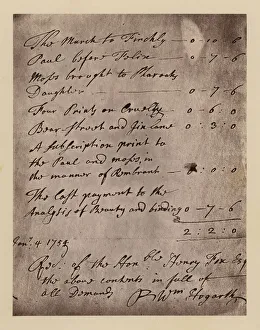 The March to Finchly — 0-10-6
Paul before Felix — 0-7-6
Moses brought to Pharaohs
Daughter — 0-7-6
Four Prints on Cruelty — 0-6-0
Beer Street and Gin Lane — 0:3:0
A Subscription print to
the Paul and moses, in
the manner of Rembrant :0:0
The last payment to the
Analysis of Beauty and binding 0-7-6
2:2:0
Jan. 4 1754
Recd. of the Honble Henry Fox Esq
the above contents in full of
all Demands
Wm Hogarth